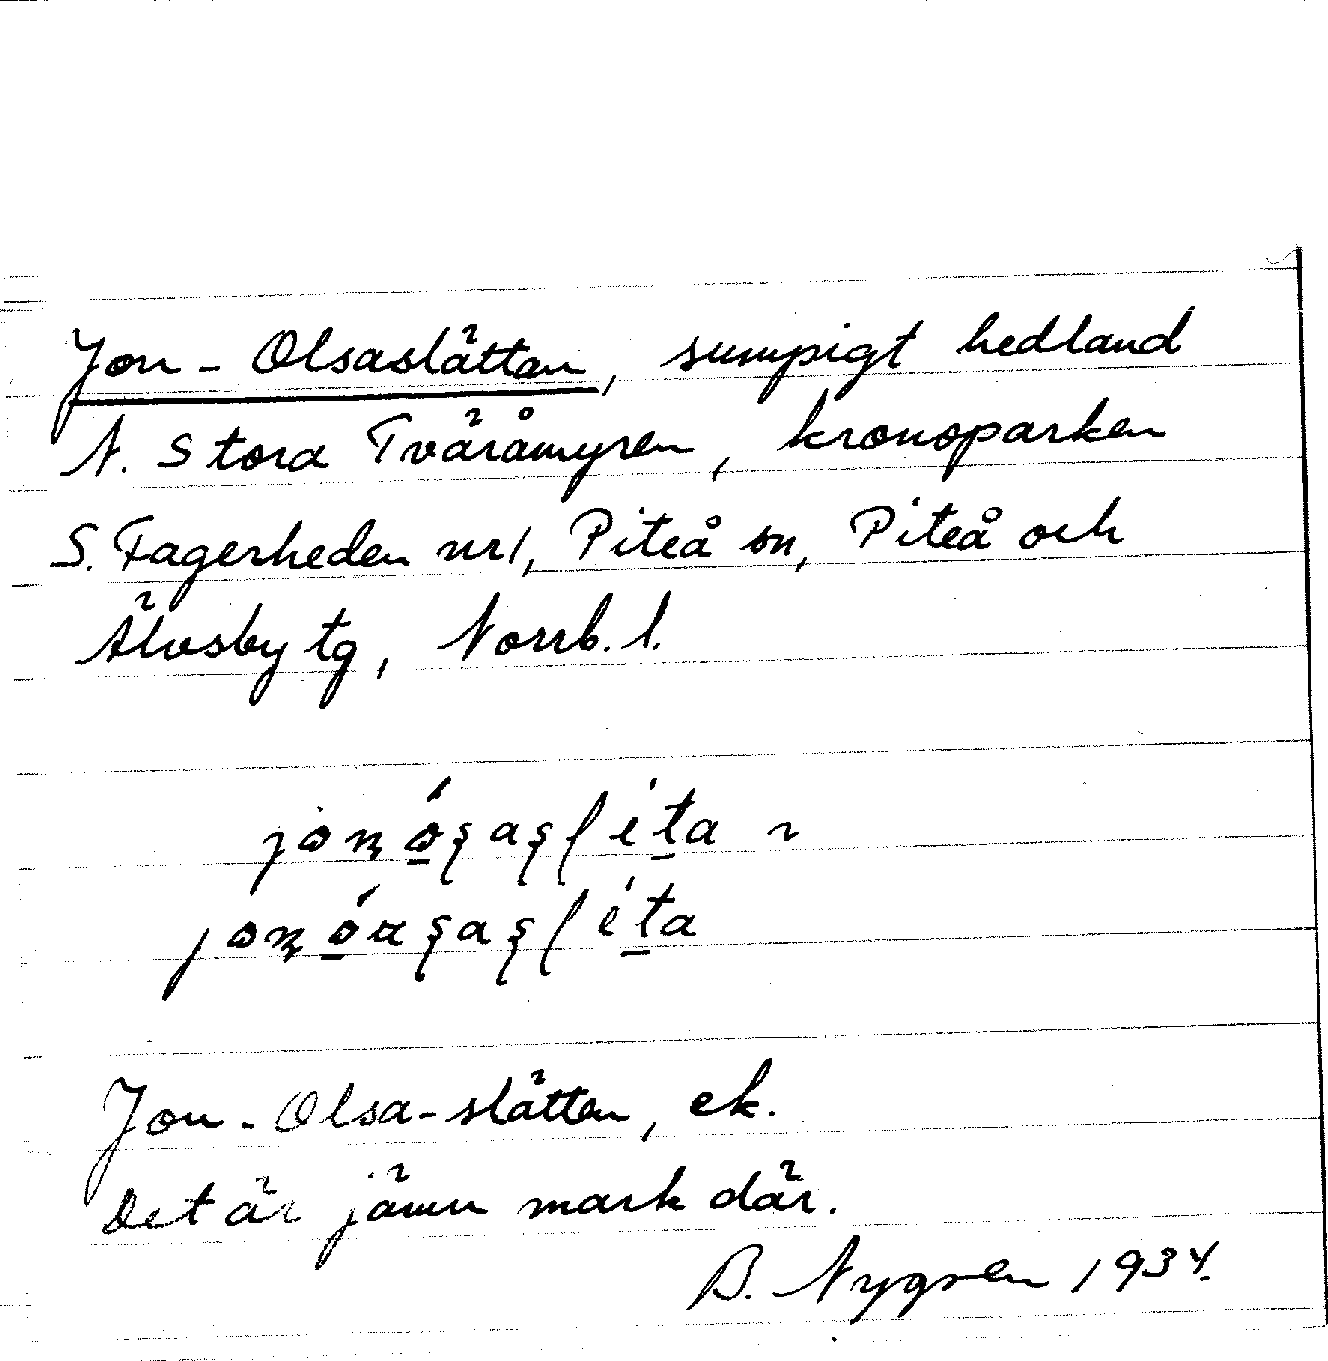 Jon-Olsaslätten, sumpigt hedland
N. Stora Tväråmyren, kronoparken
S. Fagerheden nr 1, Piteå sn, Piteå och
Älvsby tg, Norrb. l.
Jon-Olsa-slätten, ek.
Det är jämn mark där.
B. Nygren 1934.